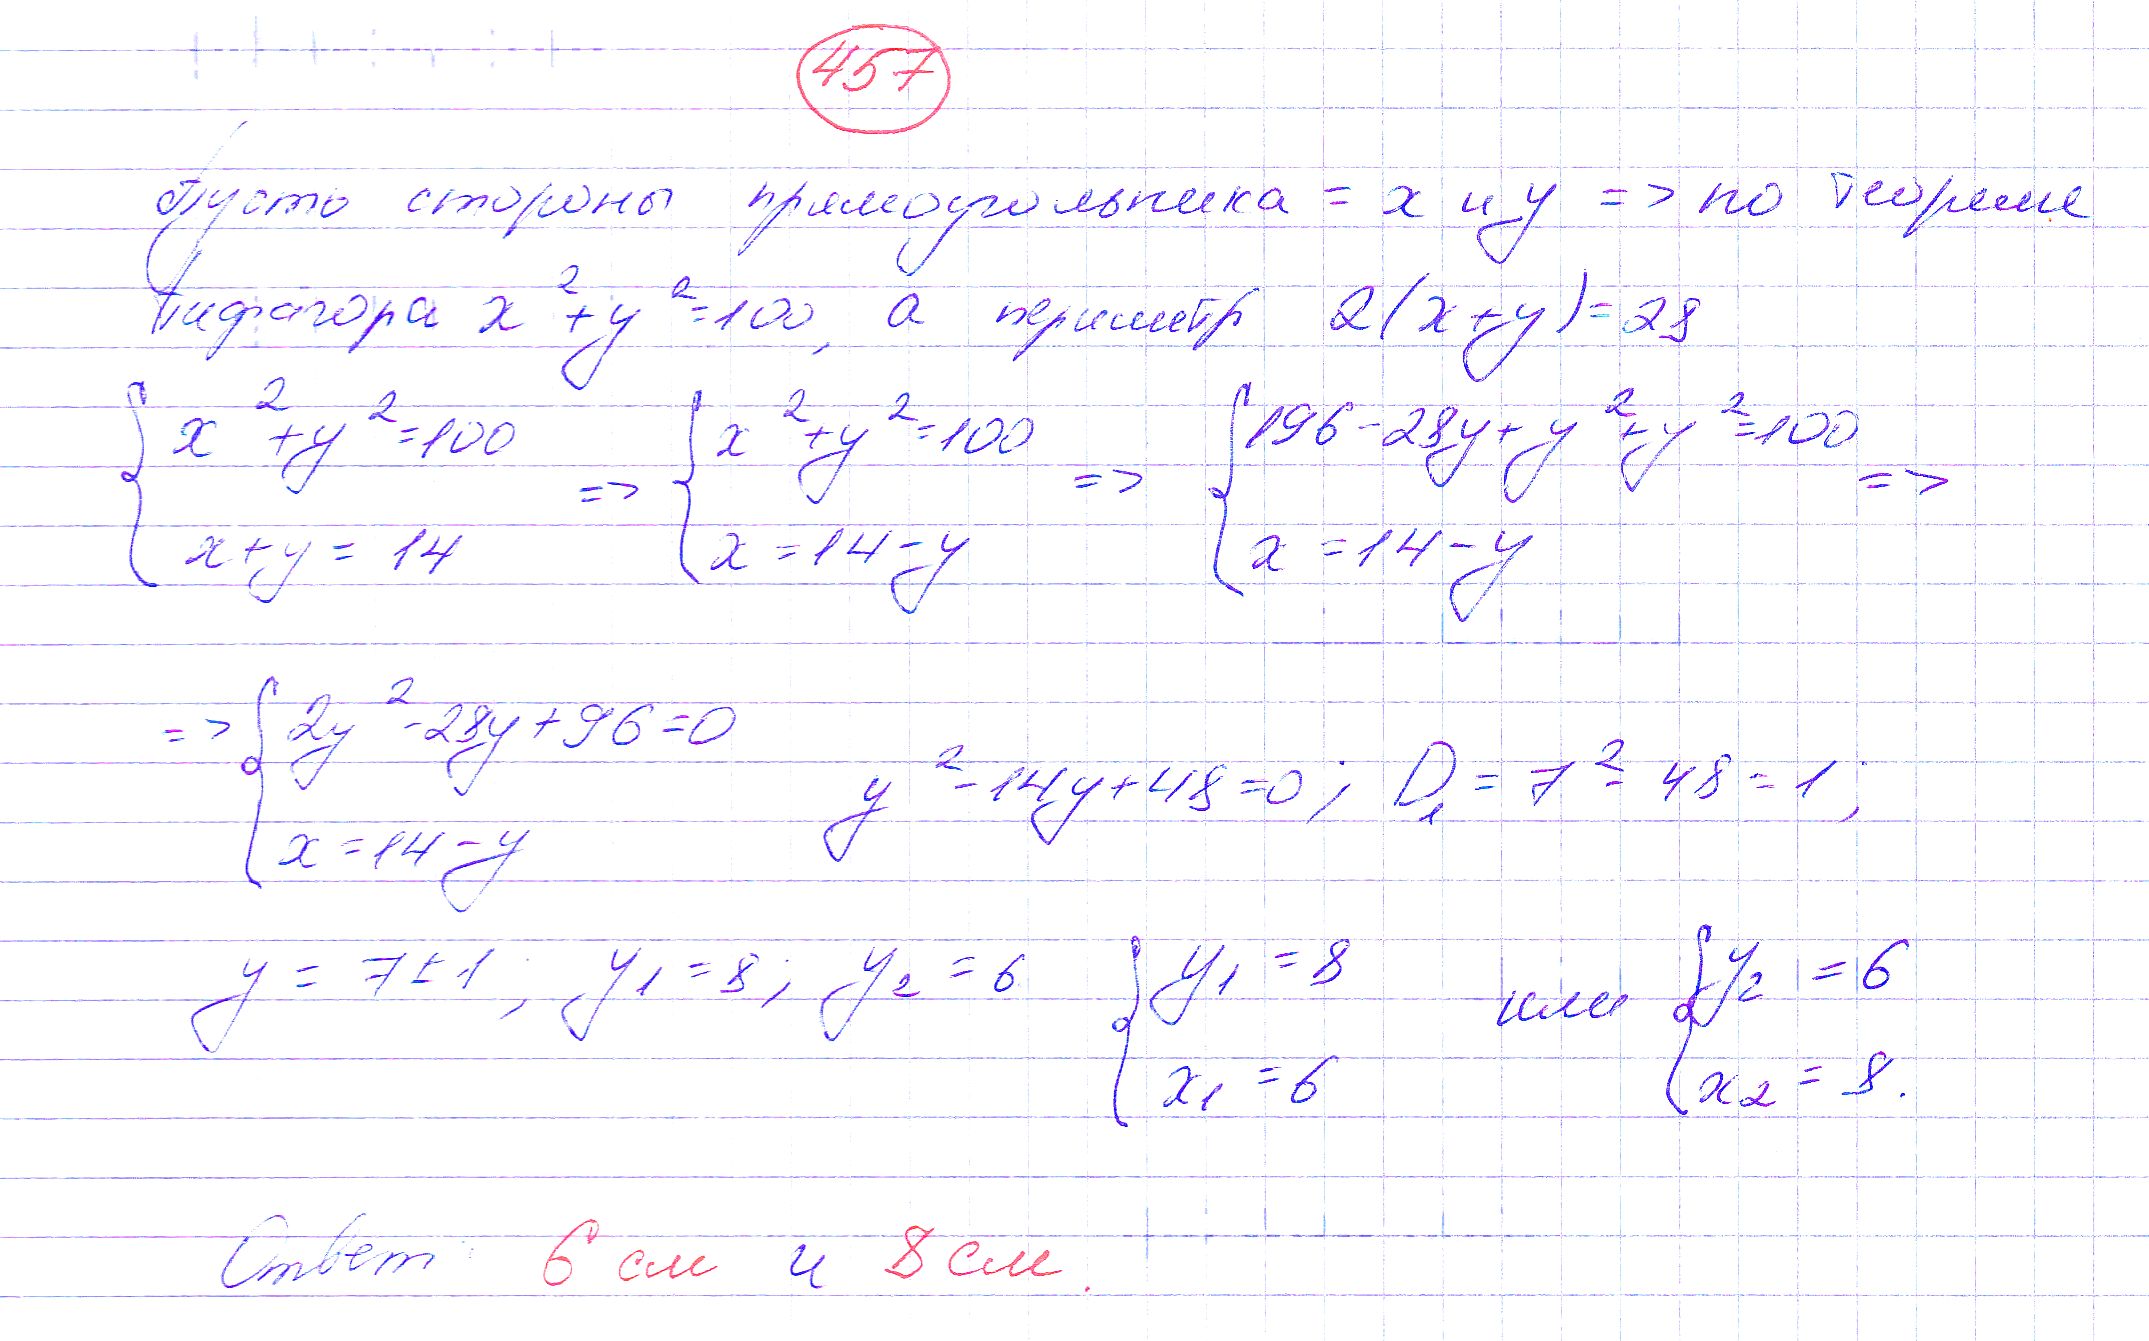 457
Пусть стороны прямоугольника = x и y => по теореме
Пифагора x²+y²=100, а периметр 2(x+y)=28
{x²+y²=100 => {x²+y²=100 => {196-28y+y²+y²=100 =>
x+y=14 x=14-y x=14-y
=> {2y²-28y+96=0
y²-14y+48=0; D₁=7²-48=1;
x=14-y
y=7±1; y₁=8; y₂=6 {y₁=8 или {y₂=6
x₁=6 x₂=8.
Ответ: 6 см и 8 см.